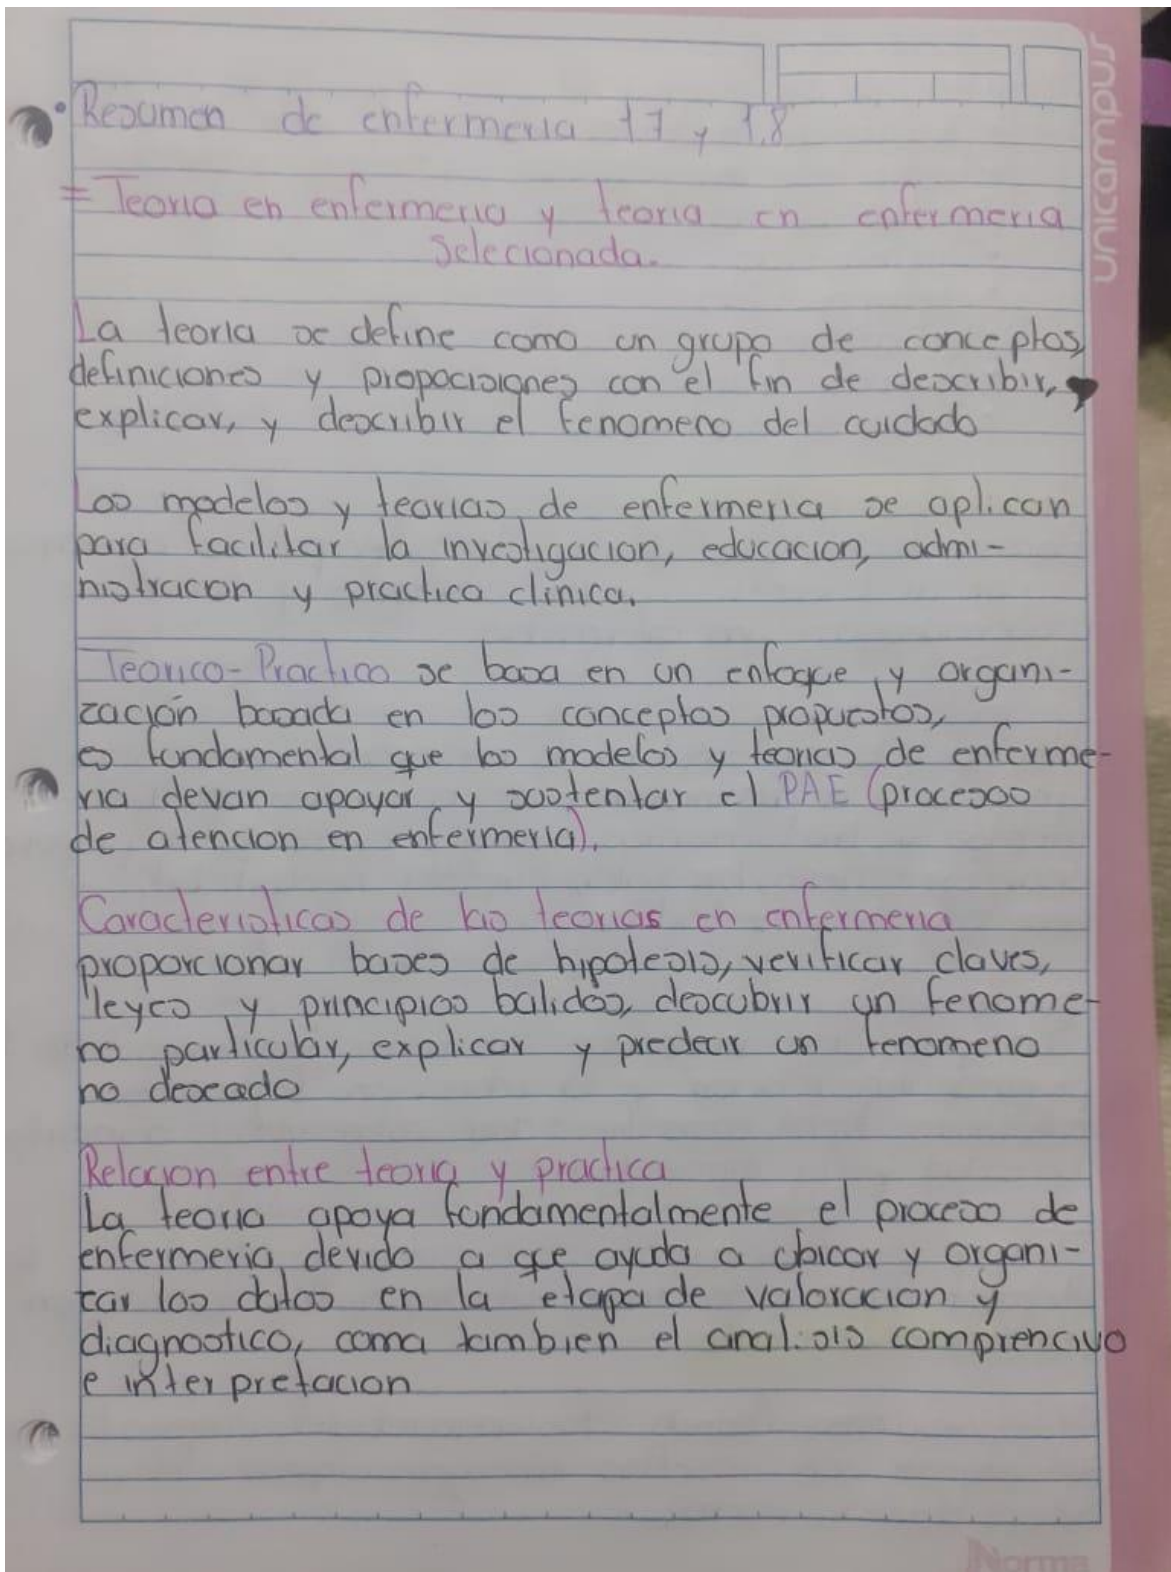 • Resumen de enfermeria 17 y 1.8
= Teoria en enfermeria y teoria en enfermeria
Selecionada.
La teoria se define como un grupo de conceptos,
definiciones y propocisiones con el fin de describir,
explicar, y describir el fenomeno del cuidado
Los modelos y teorias de enfermeria se aplican
para facilitar la investigacion, educacion, admi-
nistracon y practica clinica.
Teorico-Practico se basa en un enfoque y organi-
zación basada en los conceptos propuestos,
es fundamental que los modelos y teorias de enferme-
ria devan apoyar y sustentar el PAE (procesos
de atencion en enfermeria).
Caracteristicas de las teorias en enfermeria
proporcionar bases de hipotesis, verificar claves,
leyes y principios balidos, descubrir un fenome-
no particular, explicar y predecir un fenomeno
no deseado
Relacion entre teoria y practica
La teoria apoya fundamentalmente el proceso de
enfermeria, devido a que ayuda a ubicar y organi-
zar los datos en la etapa de valoracion y
diagnostico, como tambien el analisis comprencivo
e interpretacion
unicampus
Norma